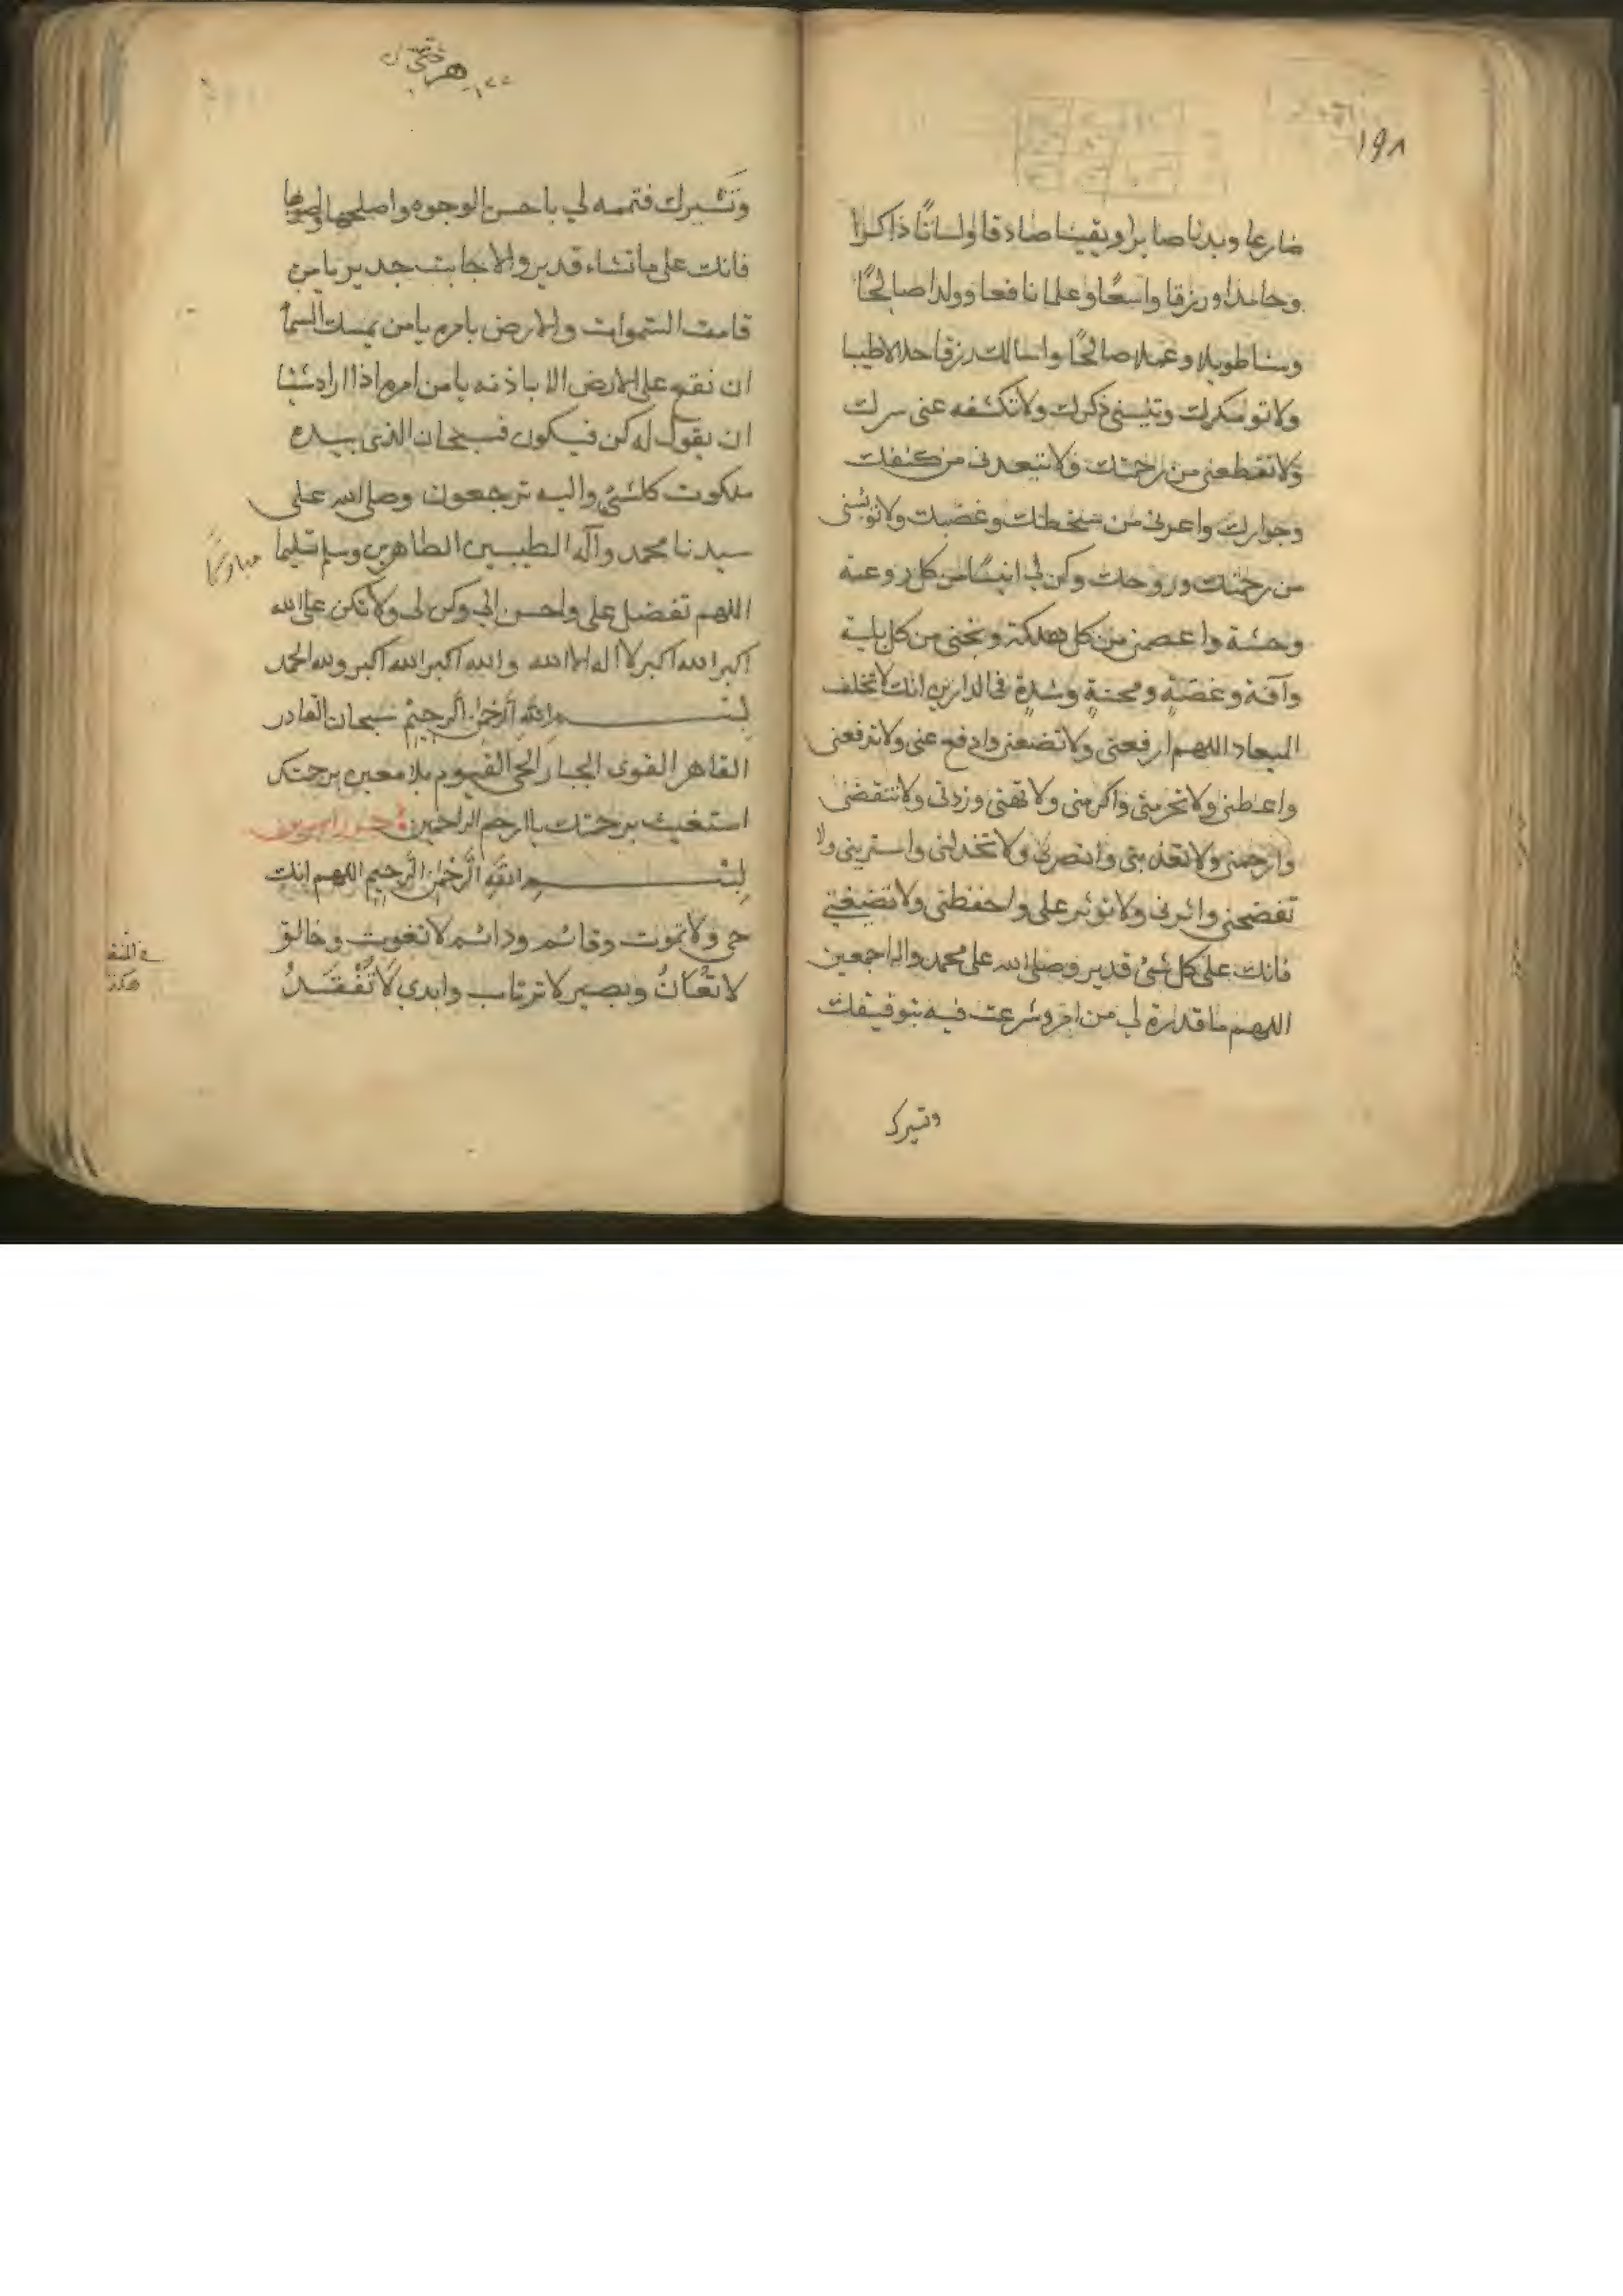 ١٩٨
ضارعا وبدنا صابرا ويقينا صادقا ولسانًا ذاكرا
وحامدا ورزقا واسعًا وعلما نافعا وولدا صالحًا
وسنا طويلا وعملا صالحًا واسالك رزقا حلالا طيبا
ولا تو مكرك وتنسنى ذكرك ولا تكشفه عنى سرك
ولا تقطعنى من رحمتك ولا تبعدنى من كنفك
وجوارك واعدنى من سخطك وغضبك ولا تويسنى
من رحمتك وروحك وكن لى انيسًا من كل روعة
وحشة واعصمنى من كل هلكة ونجنى من كل بلية
وآفة وغصّةٍ ومحنةٍ وشدةٍ فى الدارين انك لا تخلف
الميعاد اللهم ارفعنى ولا تضعنى وادفع عنى ولا تدفعنى
واعطنى ولا تحرمنى واكرمنى ولا تهنى وزدنى ولا تنقضنى
وارحمنى ولا تعذبنى وانصرنى ولا تخذلنى واسترينى ولا
تفضحنى واثرنى ولا توثر على واحفظنى ولا تضيعنى
فانك على كل شئ قدير وصلى الله على محمد واله اجمعين
اللهم ما قدرة لى من امر وشرعت فيه بتوفيقك
وتيسرك
وتَيسيرك فتممه لي باحسن الوجوه واصلحها
فانك على ما تشاء قدير والاجابت جدير يا من
قامت السموات والارض بامره يا من يمسك السمآ
ان تقع على الارض الا باذنه يا من امره اذا اراد شيئا
ان يقول له كن فيكون فسبحان الذى بيده
ملكوت كل شئ واليه ترجعون وصلى الله على
سيدنا محمد وآله الطيبين الطاهرين وسلم تسليما
اللهم تفضل على واحسن الي وكن لى ولا تكن على الله
اكبر الله اكبر لا اله الا الله والله اكبر الله اكبر ولله الحمد
بسم الله الرَّحمٰن الرحيم سبحان القادر
القاهر القوى الجبار الحى القيوم بلا معين برحمتك
استغيث برحمتك يا ارحم الراحمين
بسم اللهِ الرَّحمٰن الرَّحيم اللهم انت
حى ولا تموت وقائم ودائم لا تغوب وخالق
لا تعَانُ وبصير لا ترتاب وابدي لا تَنْفَدُ